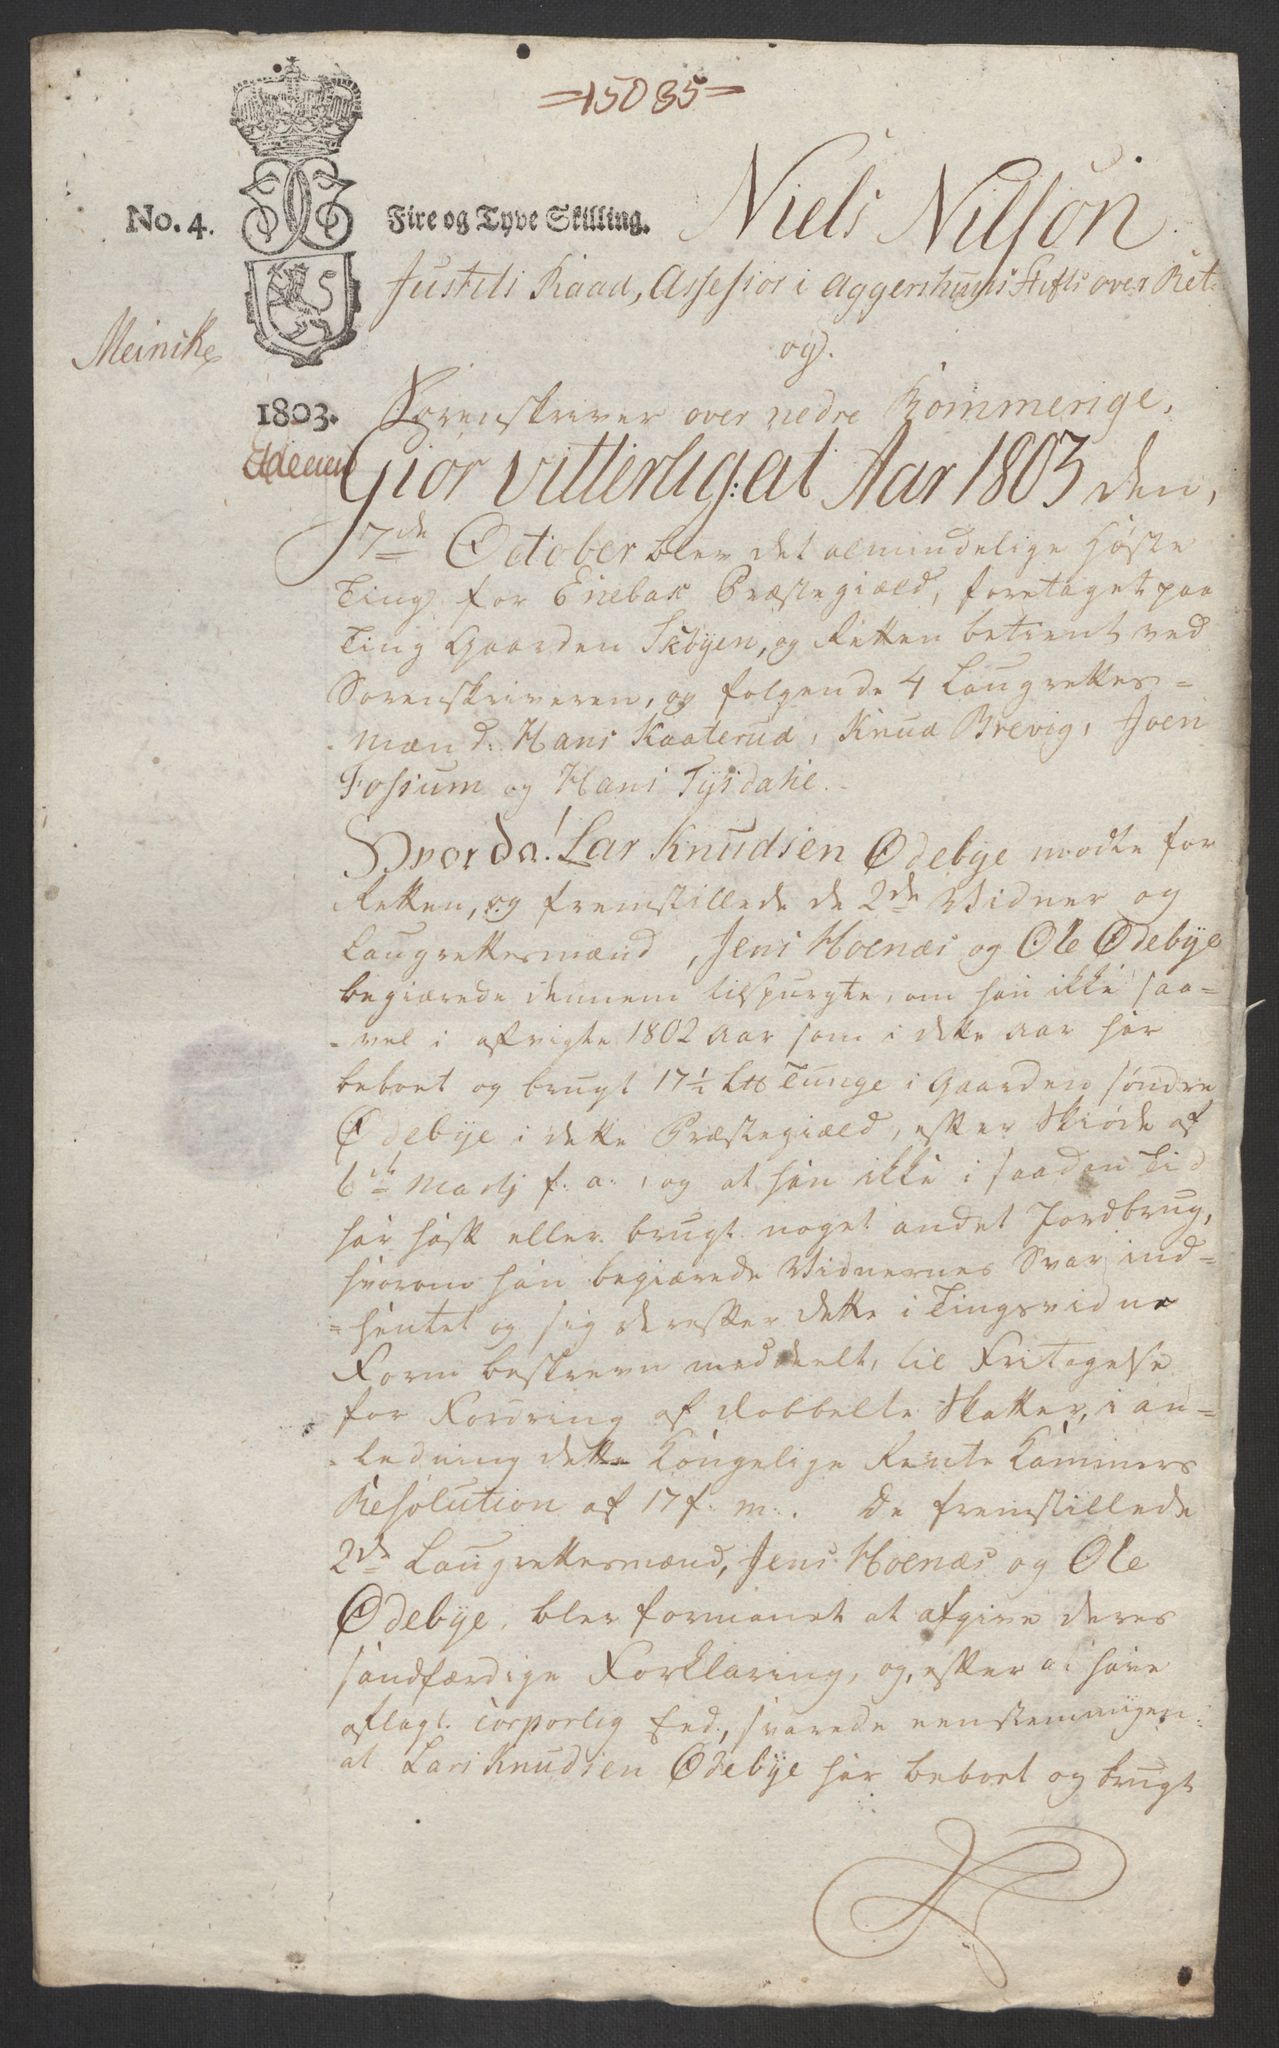 =15085=
No. 4.
Fire og Tyve Skilling.
Niels Nilsøn
Justits Raad, Assessor i Aggershuus Stifts over Ret
og
Meinike
1803.
Sorenskriver over nedre Rommerige,
Giør vitterlig: at Aar 1803 den,
7de October blev det almindelige Høste
Ting for Enebak Præstegiæld, foretaget paa
Ting Gaarden Skøyen, og Retten betient ved
Sorenskriveren, og følgende 4 Laugrettes-
-mænd: Hans Kaaterud, Knud Brevig, Joen
Fossum og Hans Tysdahl.
Hvor da! Lar Knudsen Ødebye mødte for
Retten, og fremstillede de 2de Vidner og
Laugrettesmænd, Jens Hoenæs og Ole Ødebye
begiærede dennem tilspurgte, om han ikke saa-
-vel i afvigte 1802 Aar som i dette Aar har
beboet og brugt 17½ L℔ Tunge i Gaarden søndre
Ødebye i dette Præstegiæld, efter Skiøde af
6te Martj f. a., og at han ikke i saadan Tid
har havt eller brugt noget andet Jordbrug,
hvorom han begiærede Vidnernes Svar ind-
=hentet og sig derefter dette i Tingsvidne
Form beskreven meddeelt, til Fritagelse
for Fordring af dobbelte Skatter, i an-
-ledning dette Kongelige Rente Kammers
Resolution af 17 f. m. De fremstillede
2de Laugrettesmænd, Jens Hoenæs og Ole
Ødebye, blev formanet at afgive deres
sandfærdige Forklaring, og, efter at have
aflagt corporlig Eed, svarede eenstemmigen:
at Lars Knudsen Ødebye har beboet og brugt